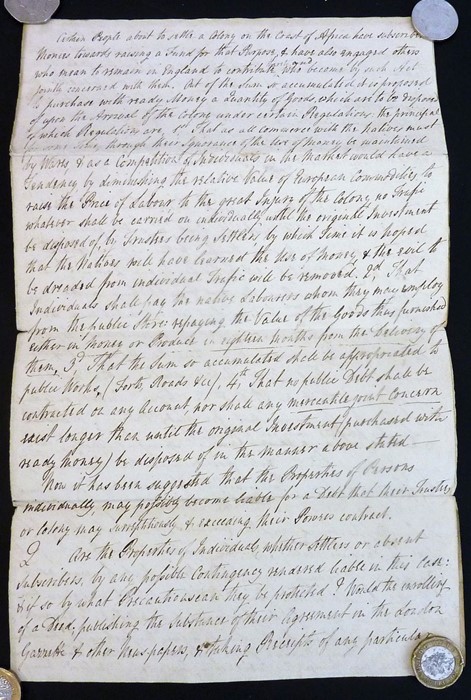 Certain People about to settle a Colony on the Coast of Africa have subscribed
Monies towards raising a Fund for that Purpose, & have also engaged others
who mean to remain in England to contribute who become by such Act
jointly concerned with them. Out of the Sum so accumulated it is proposed
to purchase with ready Money a Quantity of Goods, which are to be disposed
of upon the Arrival of the Colony under certain Regulations. the principal
of which Regulations are, 1st That as all commerce with the Natives must
for some time, through their Ignorance of the Use of Money be maintained
by Wares, & as a Competition of Individuals in the Market would have a
Tendency by diminishing the relative Value of European Commodities, to
raise the Price of Labour to the great Injury of the Colony, no Trafic
whatever shall be carried on individually until the original Investment
be disposed of, by Trustees being settlers, by which Time it is hoped
that the Natives will have learned the Use of Money, & the evil to
be dreaded from individual Trafic will be removed. 2d That
Individuals shall pay the native Labourers whom they may employ
from the public Store: repaying the Value of the Goods thus furnished
either in Money or Produce in eighteen Months from the Delivery of
them. 3d That the Sum so accumulated shall be appropriated to
public Works, (Forts, Roads &c), 4th That no public Debt shall be
contracted on any Account, nor shall any mercantile joint Concern
exist longer than until the original Investment (purchased with
ready Money) be disposed of in the manner above stated
Now it has been suggested that the Properties of Persons
individually may possibly become liable for a Debt that their Trustees
or Colony may surreptitiously & exceeding their Powers contract.
Q Are the Properties of Individuals, whether Settlers or absent
subscribers, by any possible Contingency rendered liable in this Case:
& if so by what Precautions can they be protected? Would the enrolling
of a Deed, publishing the Substance of their Agreement in the London
Gazette & other Newspapers, & taking Receipts of any particular